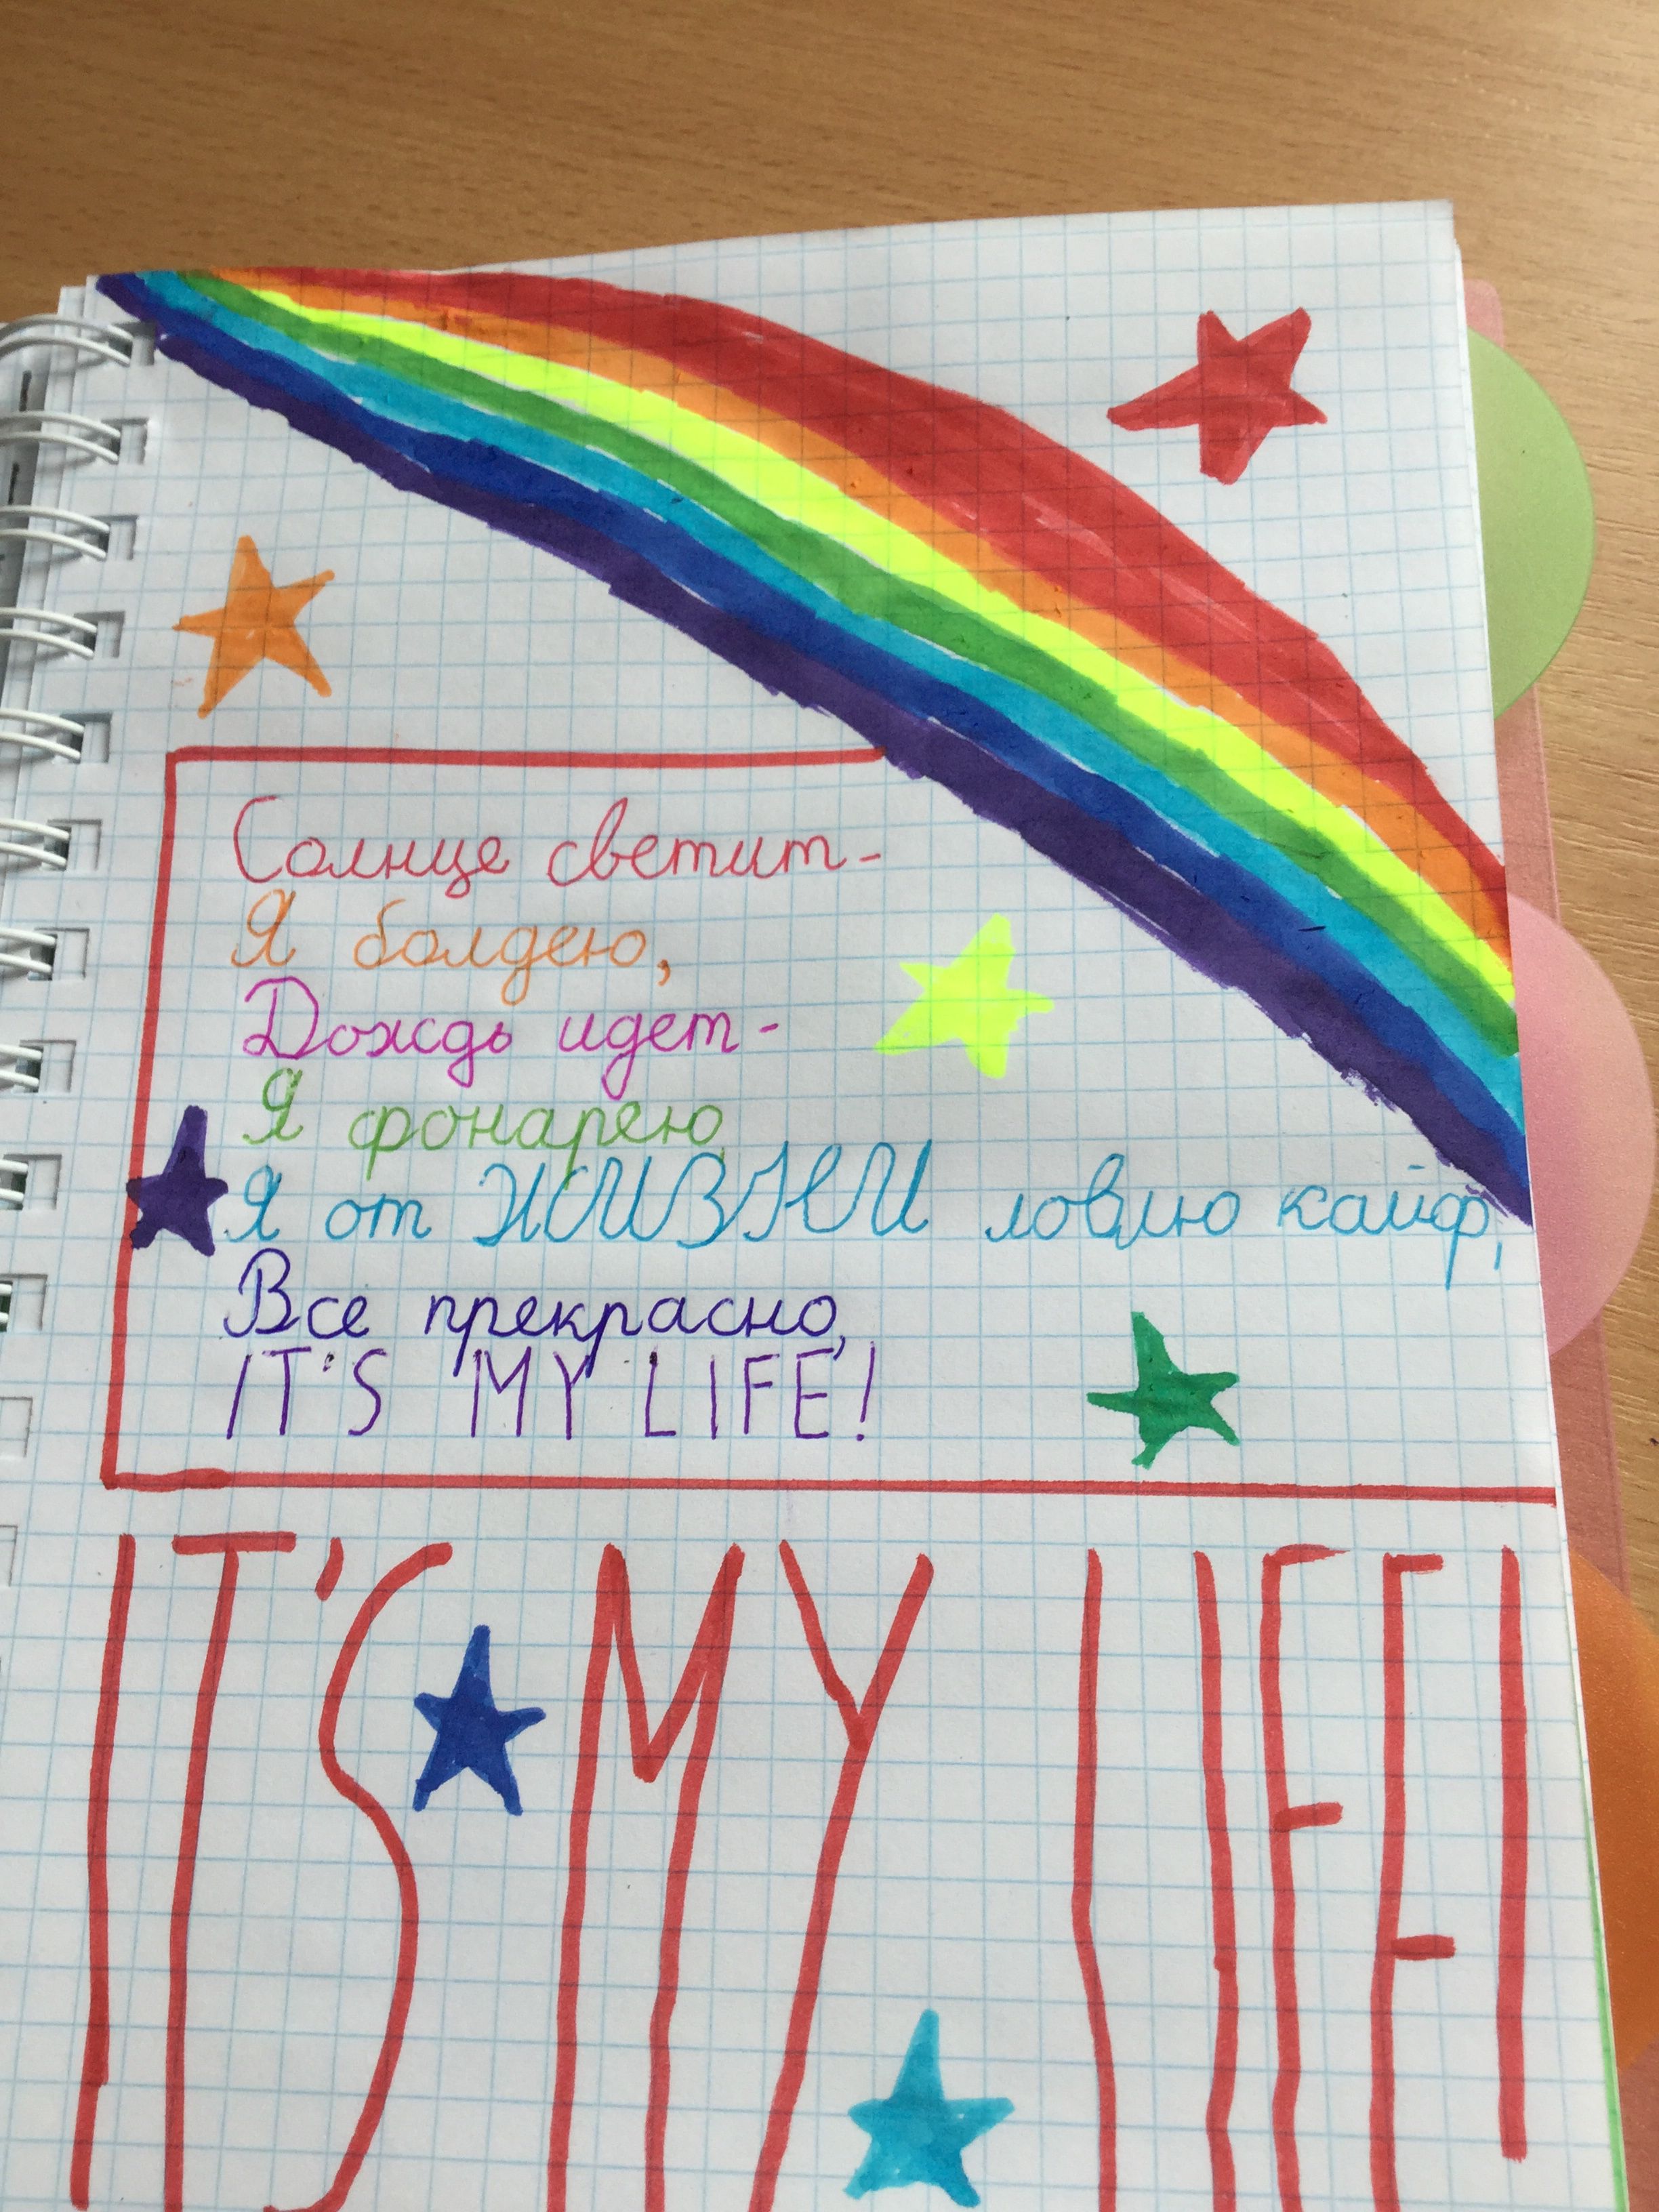 Солнце светит-
Я болдею,
Дождь идет-
Я фонарею
Я от ЖИЗНИ ловлю кайф,
Все прекрасно,
IT'S MY LIFE!
IT'S MY LIFE!